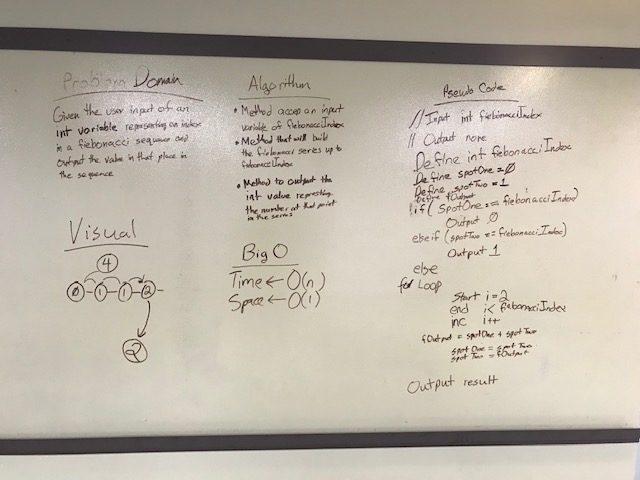 Problem Domain
Given the user input of an
int variable representing an index
in a fiebonacci sequence and
output the value in that place in
the sequence
Visual
4
0 - 1 - 1 - 2 -
2
Algorithm
• Method accep an input
variable of fiebonacciIndex
• Method that will build
the fiebonacci series up to
fiebonacciIndex
• Method to output the
int value represting
the number at that point
in the series
Big O
Time ← O(n)
Space ← O(1)
Pseudo Code
// Input int fiebonacciIndex
// Output none
Define int fiebonacciIndex
Define spotOne = 0
Define spotTwo = 1
Define fOutput
if ( SpotOne == fiebonacciIndex)
Output 0
elseif (spotTwo == fiebonacciIndex)
Output 1
else
for Loop
Start i=2
end i< fiebonacciIndex
inc i++
fOutput = spotOne + spotTwo
spotOne = spotTwo
spotTwo = fOutput
Output result